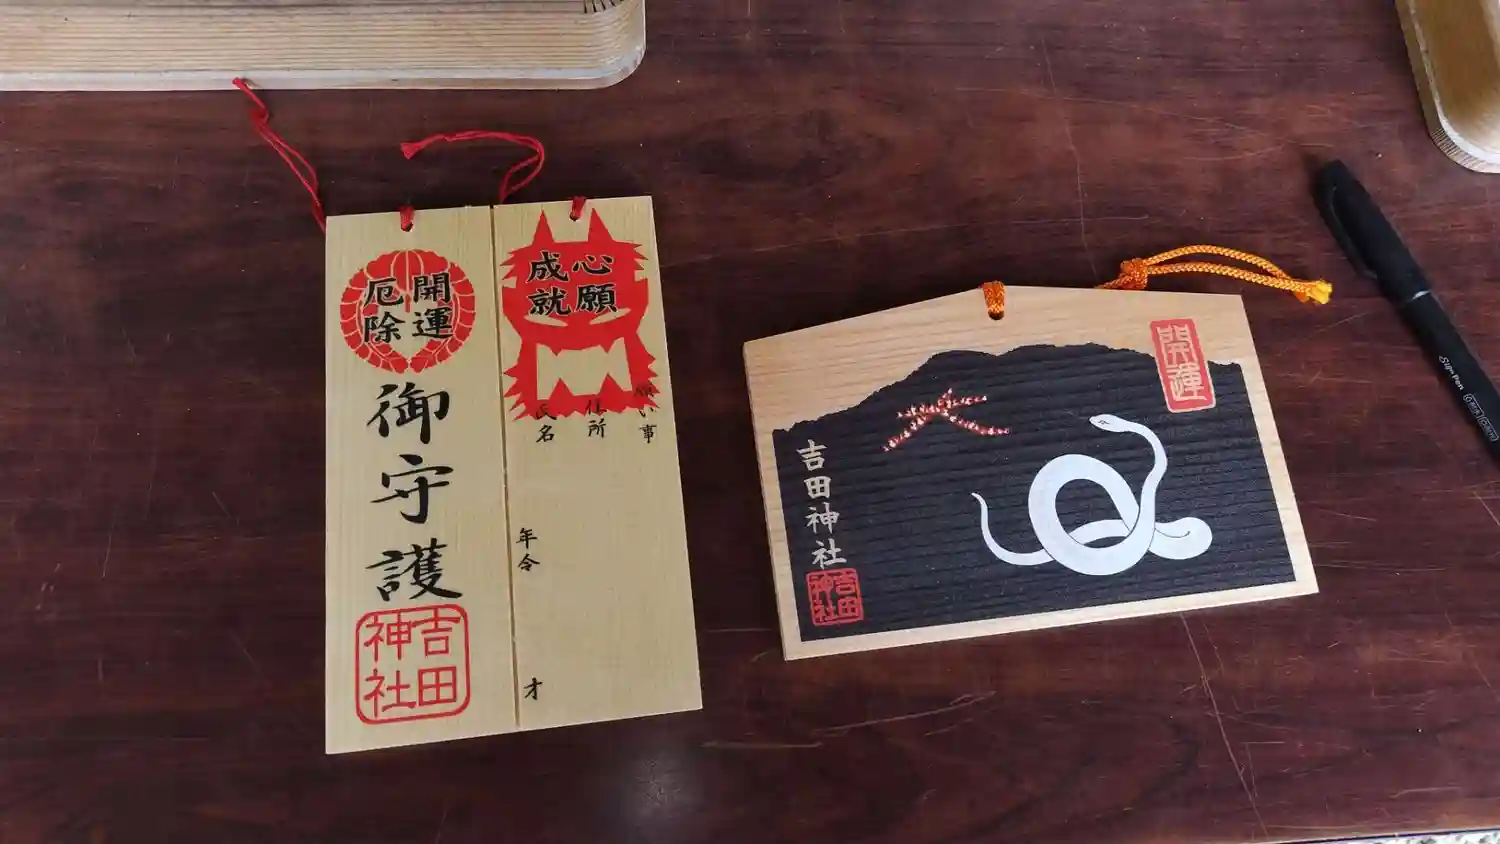 開運
厄除
御守護
吉田
神社
心願
成就
願い事
住所
氏名
年令
才
開運
吉田神社
吉田
神社
Sign Pen